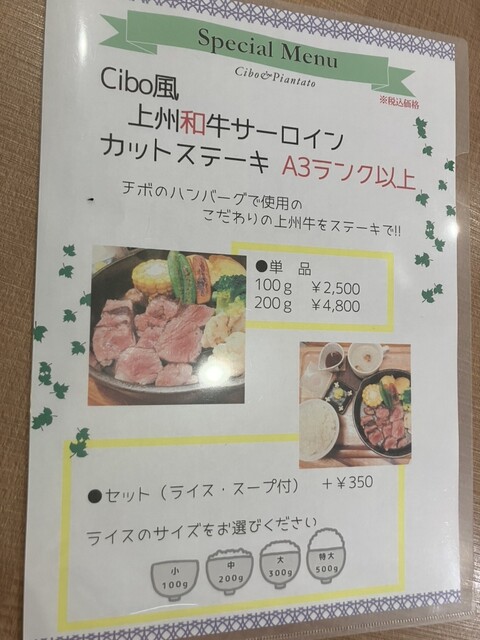 Special Menu
Cibo&Piantato
※税込価格
Cibo風
上州和牛サーロイン
カットステーキ A3ランク以上
チボのハンバーグで使用の
こだわりの上州牛をステーキで!!
●単 品
100g ￥2,500
200g ￥4,800
●セット（ライス・スープ付） ＋￥350
ライスのサイズをお選びください
小 中 大 特大
100g 200g 300g 500g